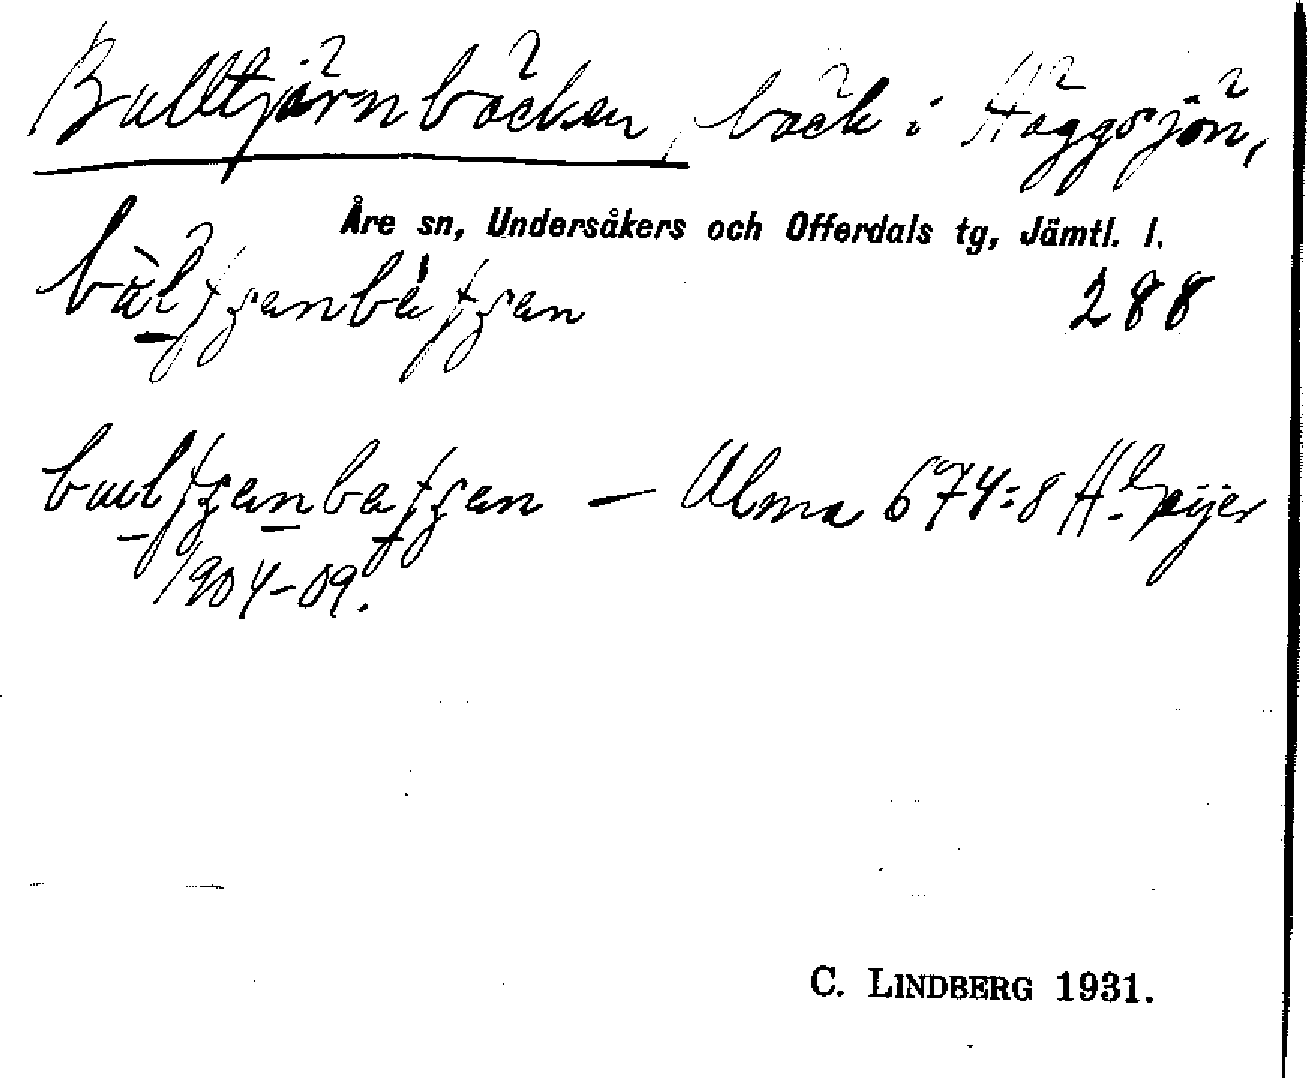 Bulltjärnbäcken, bäck i Häggsjön,
Åre sn, Undersåkers och Offerdals tg, Jämtl. l.
288
— Ulma 674:8 H. Geijer
1904-09.
C. LINDBERG 1931.